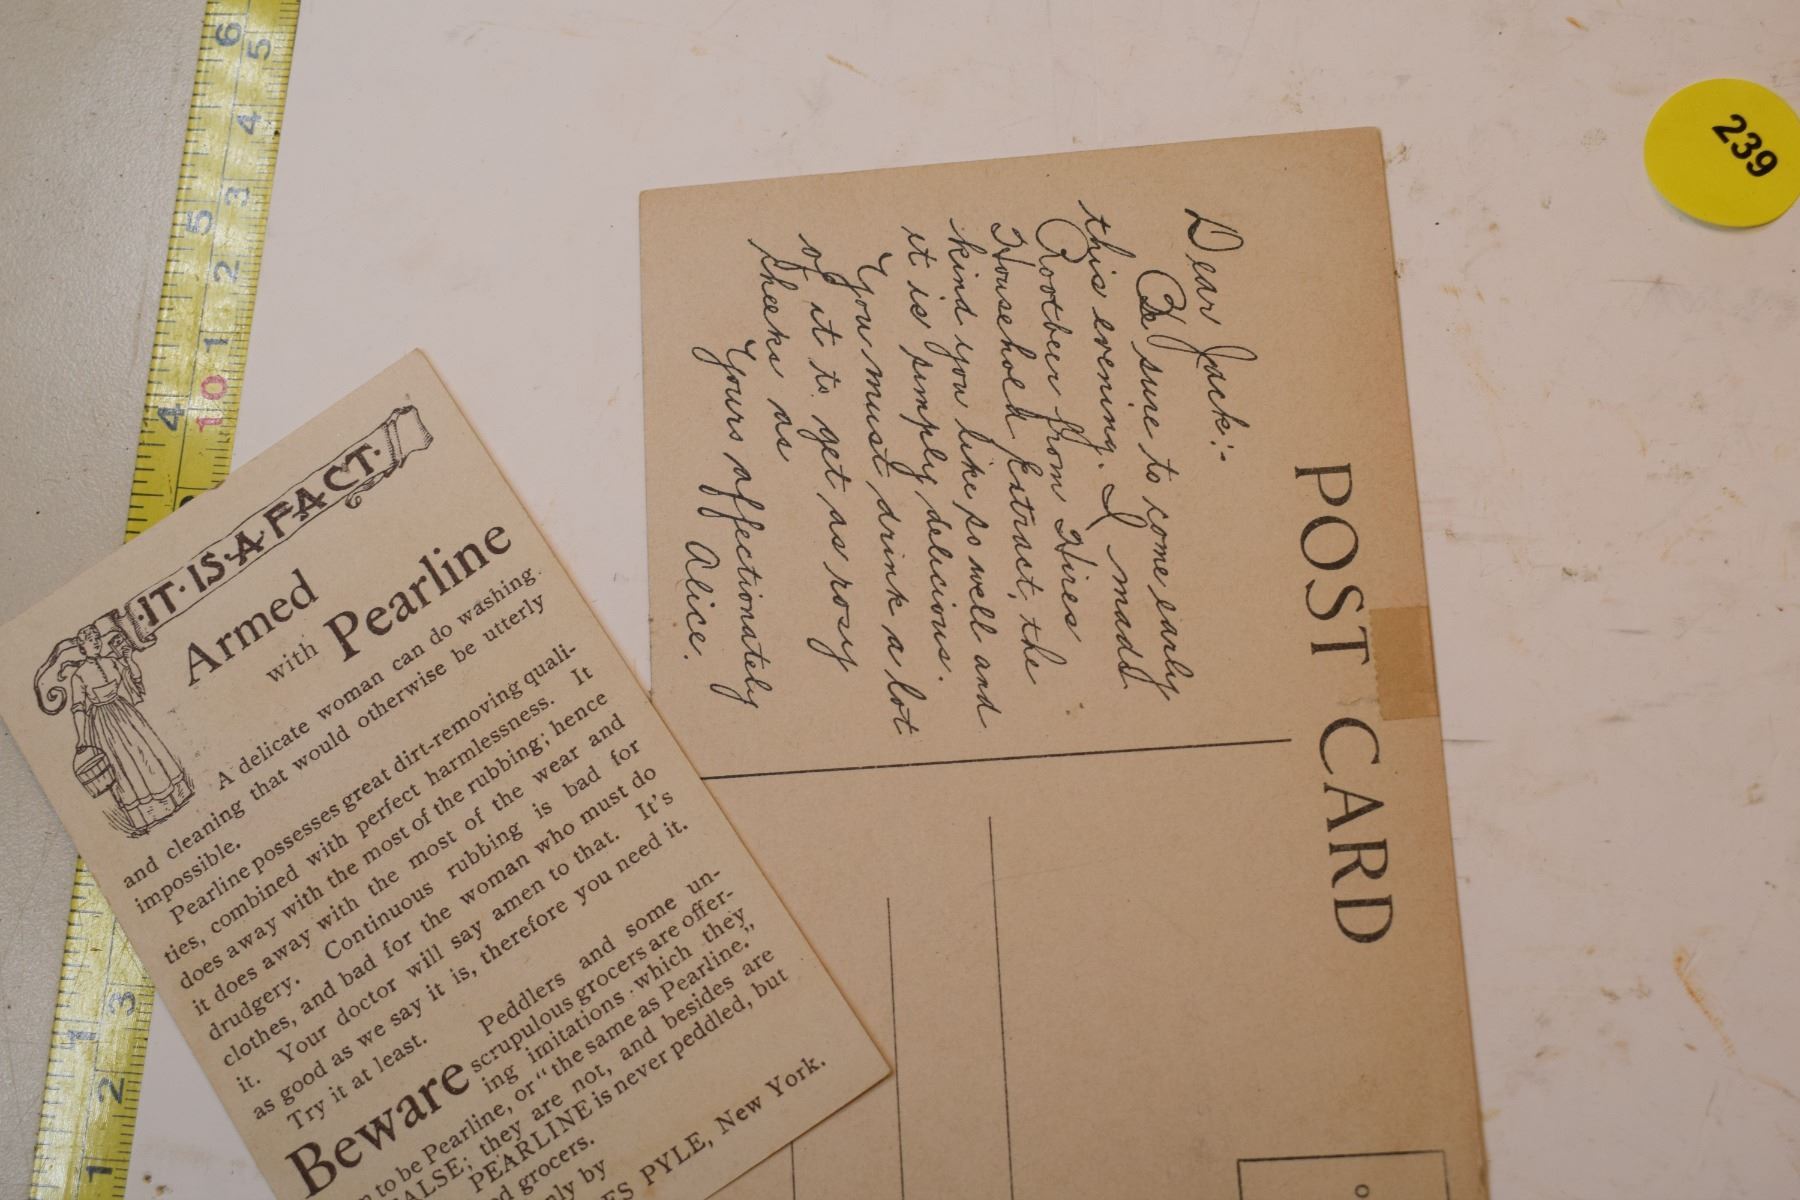 239
POST CARD
Dear Jack:-
Be sure to come early
this evening. I made
Rootbeer from Hires
Household Extract, the
kind you like so well and
it is simply delicious.
You must drink a lot
of it to get as rosy
cheeks as
Yours affectionately
Alice.
IT·IS·A·FACT·
Armed
with Pearline
A delicate woman can do washing
and cleaning that would otherwise be utterly
impossible.
Pearline possesses great dirt-removing quali-
ties, combined with perfect harmlessness. It
does away with the most of the rubbing; hence
it does away with the most of the wear and
drudgery. Continuous rubbing is bad for
clothes, and bad for the woman who must do
it. Your doctor will say amen to that. It's
as good as we say it is, therefore you need it.
Try it at least.
Beware Peddlers and some un-
scrupulous grocers are offer-
ing imitations which they
to be Pearline, or "the same as Pearline."
they are not, and besides are
PEARLINE is never peddled, but
grocers.
by
PYLE, New York.
6 5
4
5 3
2
1
4 10
3
1
2
1